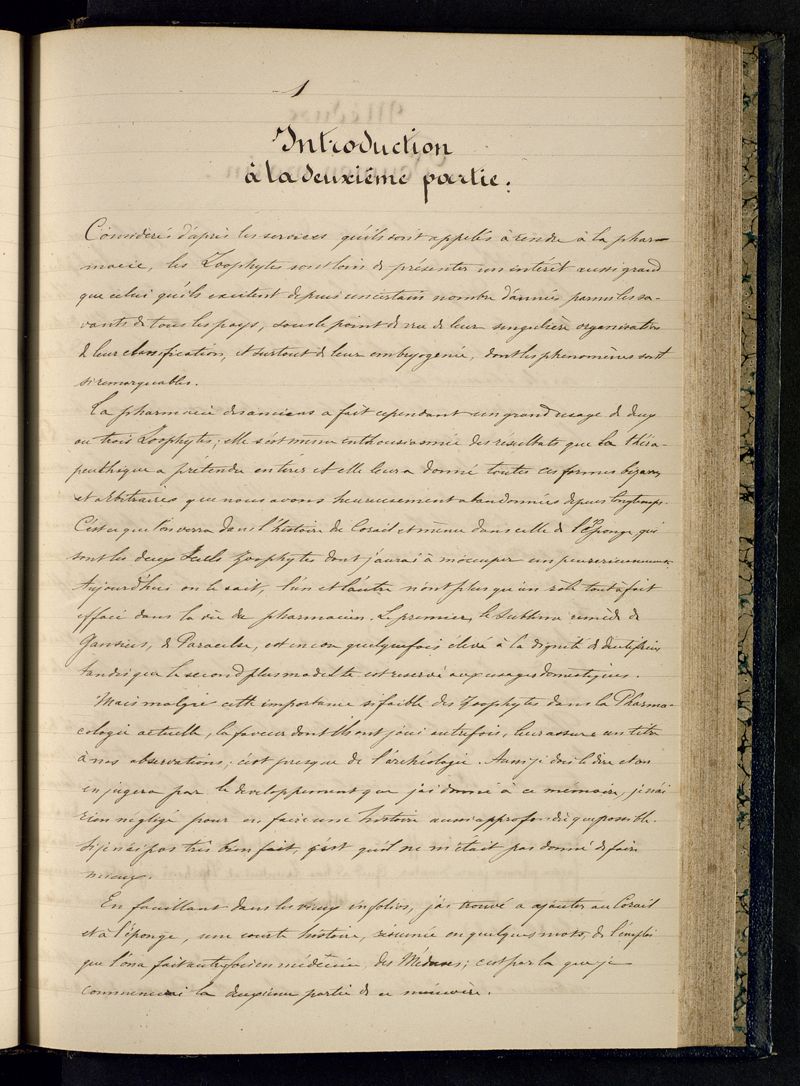 1
Introduction
à la deuxième partie.
Considérés d'après les services qu'ils sont appelés à rendre à la phar-
macie, les Zoophytes sont loin de présenter un intérêt aussi grand
que celui qu'ils excitent depuis un certain nombre d'années parmi les sa-
vants de tous les pays, sous le point de vue de leur singulière organisation
de leur classification, et surtout de leur embryogénie, dont les phénomènes sont
si remarquables.
La pharmacie des anciens a fait cependant un grand usage de deux
ou trois Zoophytes; elle s'est même enthousiasmée des résultats que la théra-
peuthique a prétendu en tirer et elle leur a donné toutes ces formes bizarres
et arbitraires que nous avons heureusement abandonnées depuis longtemps.
C'est ce que l'on verra dans l'histoire du Corail et même dans celle de l'Eponge qui
sont les deux seuls Zoophytes dont j'aurai à m'occuper un peu sérieusement.
Aujourd'hui on le sait, l'un et l'autre n'ont plus qu'un rôle tout à fait
effacé dans la vie du pharmacien. Le premier, le sublime remède de
Gansius, de Paracelse, est encore quelquefois élevé à la dignité de dentifrice
tandis que le second plus modeste est reservé aux usages domestiques.
Mais malgré cette importance si faible des Zoophytes dans la Pharma-
cologie actuelle, la faveur dont ils ont joui autrefois, leur assure un titre
à nos observations; c'est presque de l'archéologie. Aussi je dois le dire et on
en jugera par le developpement que j'ai donné à ce mémoire, je n'ai
rien négligé pour en faire une histoire aussi approfondie que possible.
Si je n'ai pas très bien fait, c'est qu'il ne m'était pas donné de faire
mieux.
En fouillant dans les vieux infolios, j'ai trouvé à ajouter au Corail
et à l'éponge, une courte histoire, résumée en quelques mots, de l'emploi
que l'on a fait autrefois en médecine, des Méduses; c'est par là que je
commencerai la deuxième partie de ce mémoire.